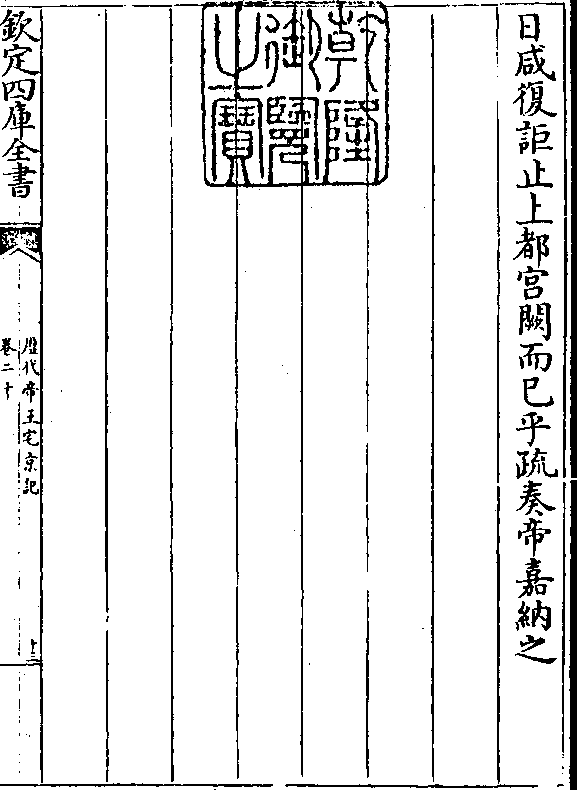 日咸復詎止上都宮闕而已乎疏奏帝嘉納之
乾隆
御覽
之寶
欽定四庫全書
歷代帝王宅京記
卷二十
十三